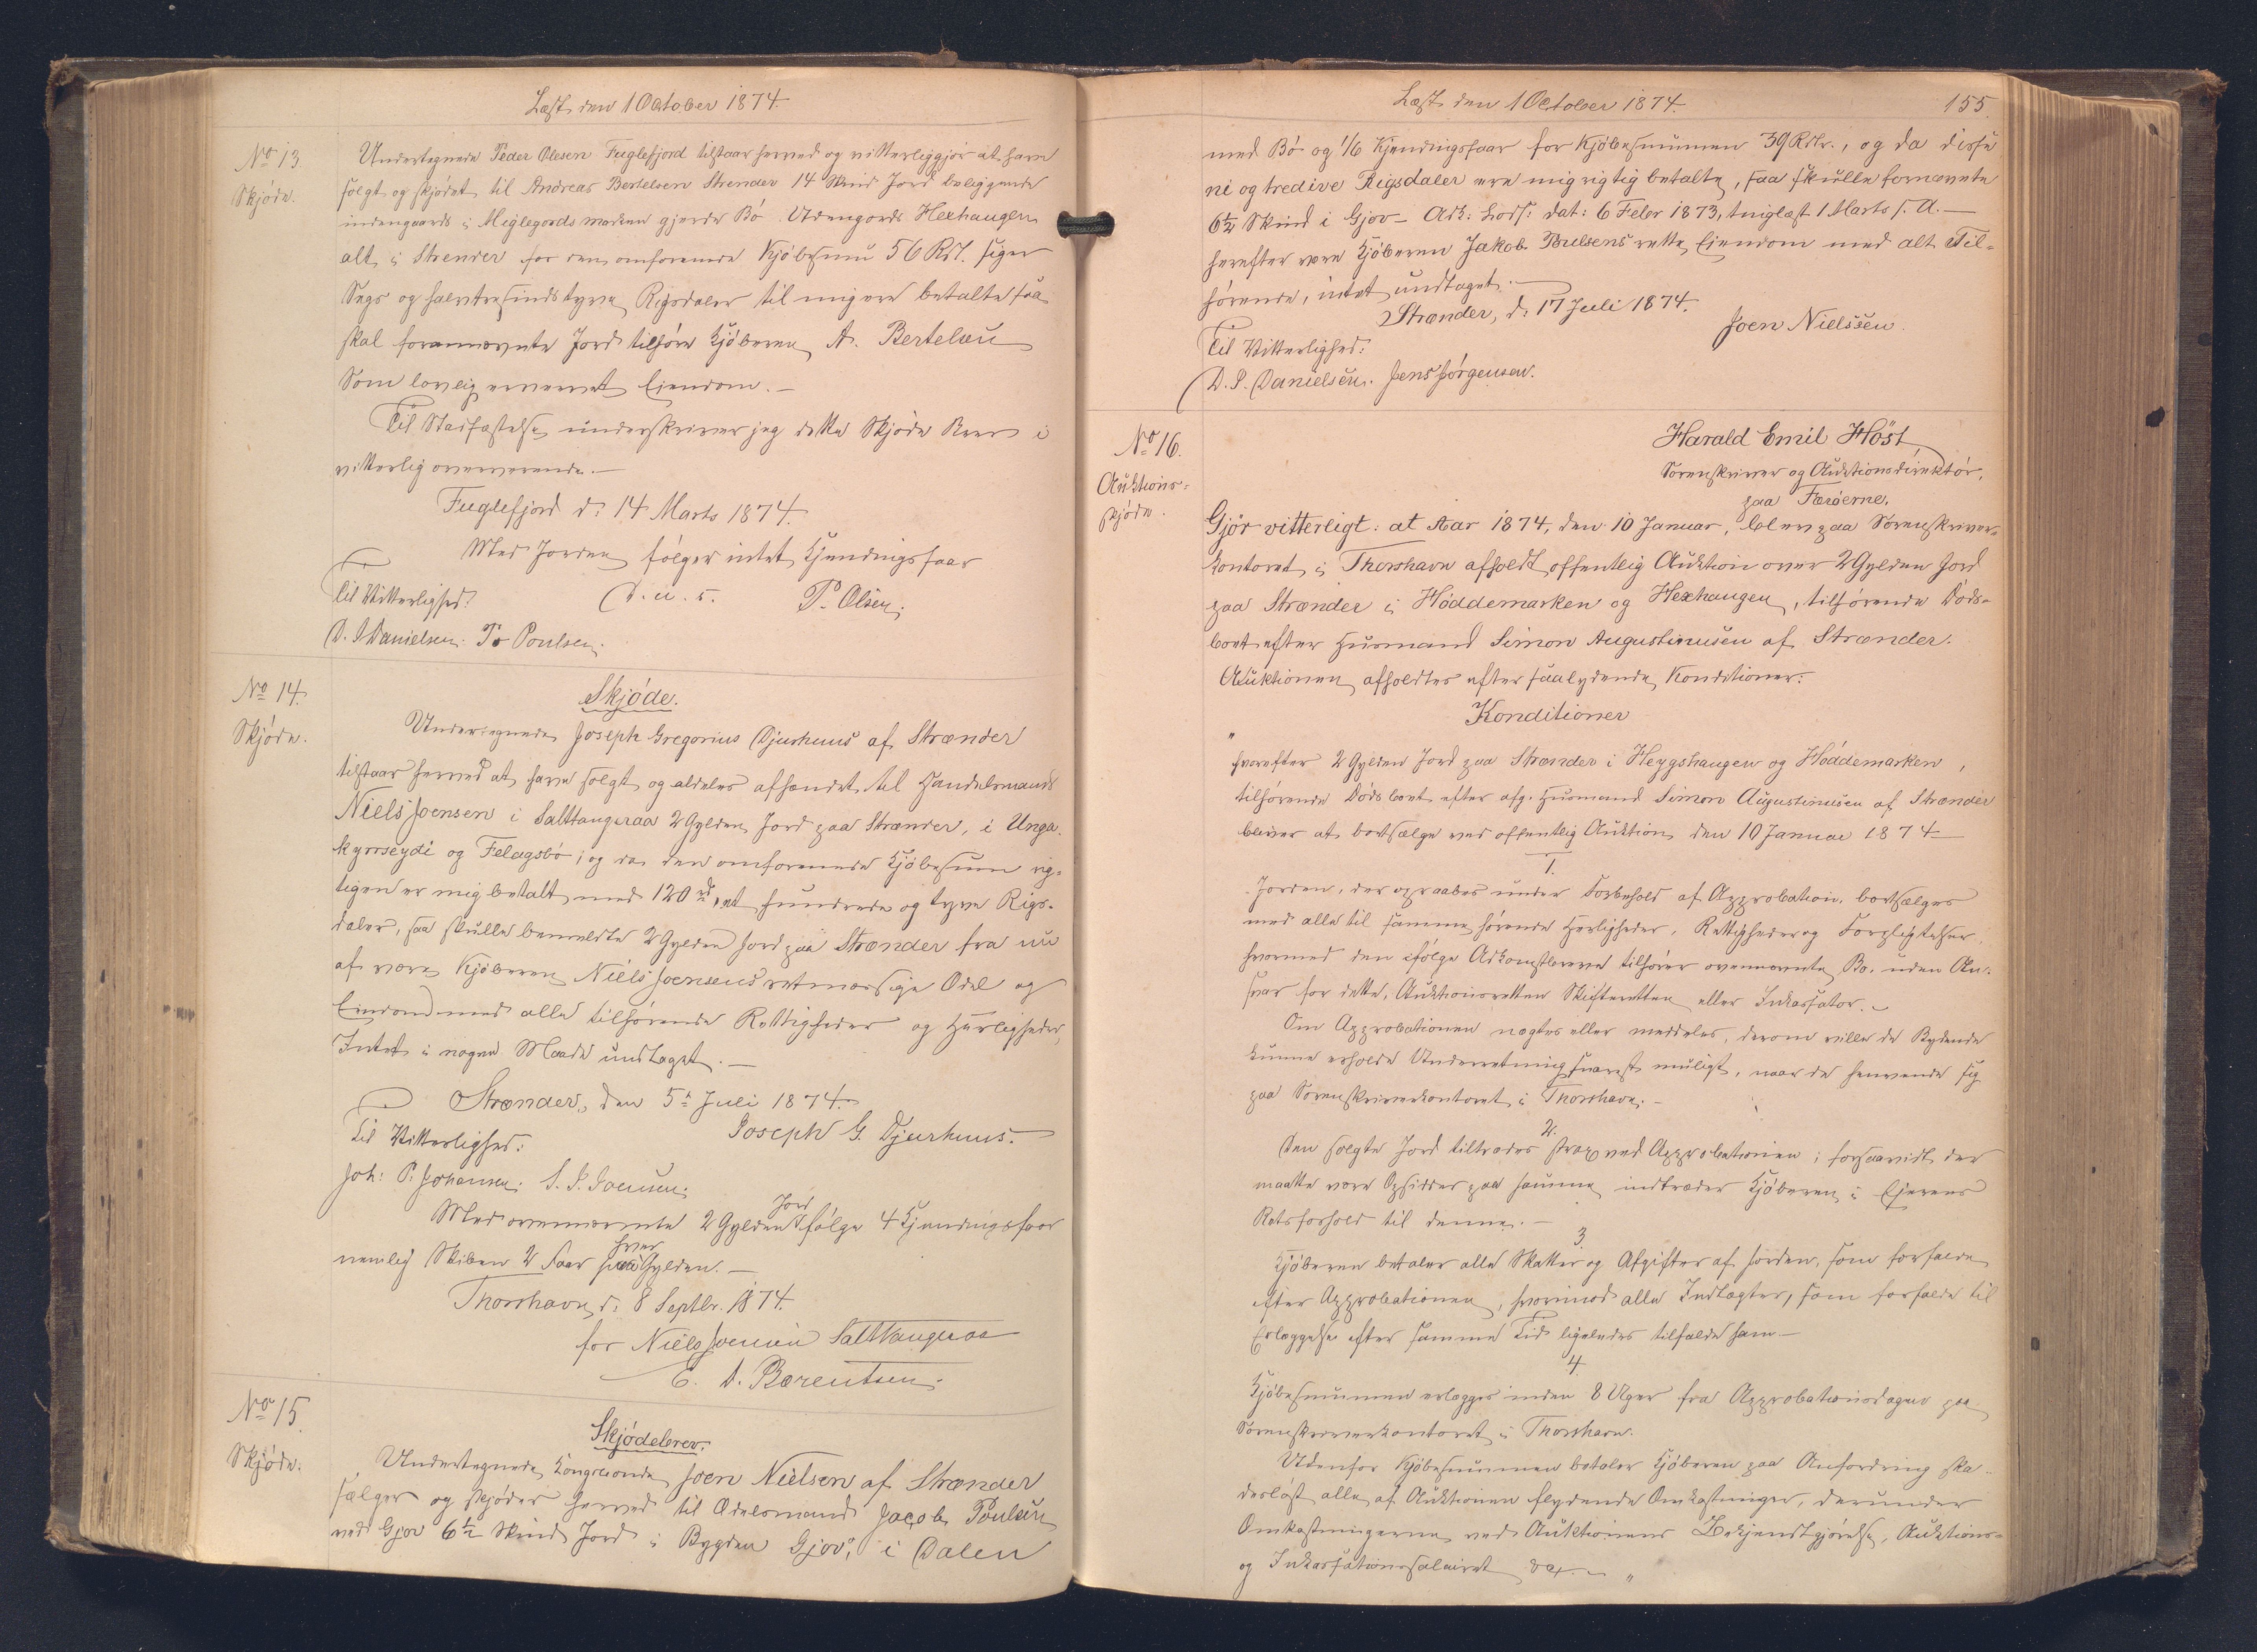 Læst den 1 October 1874.
No 13.
Skjøde.
Undertegnede Peder Olesen Fuglefjord tilstaar herved og vitterliggjør at have
solgt og skjødet til Andreas Bertelsen Strender 14 Skind Jord beliggende
indengaards i Meglegords marken gjerde Bö. Udengords Hexhaugen
alt i Strender for den omforenede Kjøbesum 56 Rdl. siger
Sex og halvtresindstyve Rigsdaler til mig ere betalte saa
skal forannævnte Jord tilhøre Kjøberen A. Bertelsen
Som lovlig erhvervet Eiendom.—
Til Stadfæstelse underskriver jeg dette Skjøde Brev i
vitterlig overværende.—
Fuglefjord d: 14 Marts 1874.
Med Jorden følger intet Kjendingsfaar
Til Vitterlighed: D. u. s. P. Olsen.
D. J. Danielsen. P. Poulsen.
No 14.
Skjøde.
Skjøde.
Undertegnede Joseph Gregorius Djurhuus af Strænder
tilstaar herved at have solgt og aldeles afhændet til Handelsmand
Niels Joensen i Salttangeraa 2 Gylden Jord paa Strænder, i Unga-
kyrrseydi og Felagsbö; og da den omforenede Kjøbesum rig-
tigen er mig betalt med 120 rd, et hundrede og tyve Rigs-
daler, saa skulle bemeldte 2 Gylden Jord paa Strænder fra nu
af være Kjøberen Niels Joensens retmæssige Odel og
Eiendom med alle tilhørende Rettigheder og Herligheder,
Intet i nogen Maade undtaget.—
Strænder, den 5te Juli 1874.
Til Vitterlighed: Joseph G. Djurhuus.
Joh: P. Johansen. S. P. Joensen.
Med ovennævnte 2 Gylden Jord følge 4 Kjendingsfaar
nemlig Skiben 2 Faar hver Gylden.—
Thorshavn, d. 8 Septbr. 1874.
for Niels Joensen Salttangeraa
E. D. Bærentsen.
No 15.
Skjøde.
Skjødebrev.
Undertegnede Kongsbonde Joen Nielsen af Strænder
sælger og skjøder herved til Odelsmand Jacob Poulsen
ved Gjov 6½ Skind Jord i Bygden Gjov, i Dalen
Læst den 1 October 1874. 155
med Bö og 1/6 Kjendingsfaar for Kjøbesummen 39 Rdlr., og da disse
ni og tredive Rigsdaler ere mig rigtig betalte, saa skulle fornævnte
6½ Skind i Gjov – Adk: Lods: dat: 6 Febr 1873, tinglæst 1 Marts s. A.—
herefter være Kjøberen Jakob Poulsens rette Eiendom med alt Til-
hørende, intet undtaget.—
Strænder, d. 17 Juli 1874.
Til Vitterlighed: Joen Nielssen.
D. P. Danielsen. Jens Jørgensen.
No 16.
Auktions-
skjøde.
Harald Emil Høst
Sorenskriver og Auktionsdirektør,
paa Færøerne,
Gjør vitterligt: at Aar 1874, den 10 Januar, blev paa Sorenskriver-
kontoret i Thorshavn afholdt offentlig Auktion over 2 Gylden Jord
paa Strænder i Höddemarken og Hexhaugen, tilhørende Døds-
boet efter Husmand Simon Augustinusen af Strænder.
Auktionen afholdtes efter saalydende Konditioner:
Konditioner
"
hvorefter 2 Gylden Jord paa Strænder i Heygshaugen og Höddemarken,
tilhørende Dødsboet efter afg. Husmand Simon Augustinusen af Strænder
bliver at bortsælge ved offentlig Auktion den 10 Januar 1874—
1.
Jorden, der opraabes under Forbehold af Approbation, bortsælges
med alle til samme hørende Herligheder, Rettigheder og Forpligtelser,
hvormed den ifølge Adkomstbreve tilhører ovennævnte Bo, uden An-
svar for dette, Auktionsretten Skifteretten eller Inkassator.
Om Approbationen nægtes eller meddeles, derom ville de Bydende
kunne erholde Underretning snarest muligt, naar de henvende sig
paa Sorenskriverkontoret i Thorshavn.—
2.
Den solgte Jord tiltrædes strax ved Approbationen; forsaavidt der
maatte være Opsidder paa samme indtræder Kjøberen i Ejerens
Retsforhold til denne.—
3.
Kjøberen betaler alle Skatter og Afgifter af Jorden, som forfalde
efter Approbationen, hvorimod alle Indtægter, som forfalde til
Erlæggelse efter samme Tid ligeledes tilfalde ham—
4
Kjøbesummen erlægges inden 8 Uger fra Approbationsdagen paa
Sorenskriverkontoret i Thorshavn.
Udenfor Kjøbesummen betaler Kjøberen paa Anfordring ska-
desløst alle af Auktionen flydende Omkostninger, derunder
Omkostningerne ved Auktionens Bekjendtgjørelse, Auktions-
og Inkassationssalairet &c. "